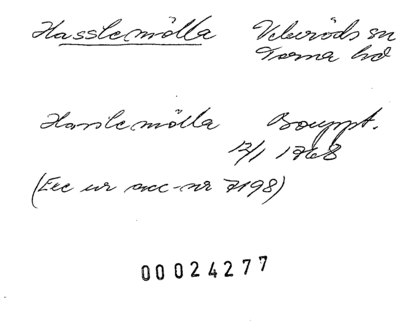 Hasslemölla Veberöds sn
Torna hd
Hasslemölla Bouppt.
12/1 1768
(Exc ur acc-nr 7198)
00024277